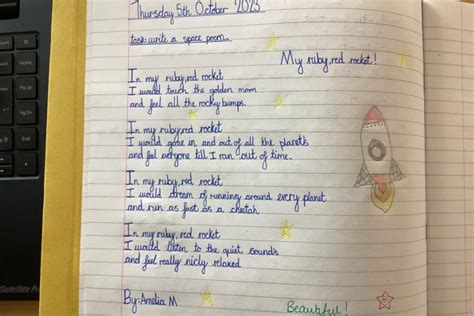 Thursday 5th October 2023
task: write a space poem.
My ruby,red rocket!
In my ruby,red rocket
I would touch the golden mom
and feel all the rocky bumps.
In my ruby,red rocket
I would gaze in and out of all the planets
and feel everyone till I ran out of time.
In my ruby,red rocket
I would dream of running around every planet
and run as fast as a cheetah
In my ruby,red rocket
I would listen to the quiet sounds
and feel really nicly relaxed
By: Amelia M
Beautiful!
Satellite Pro